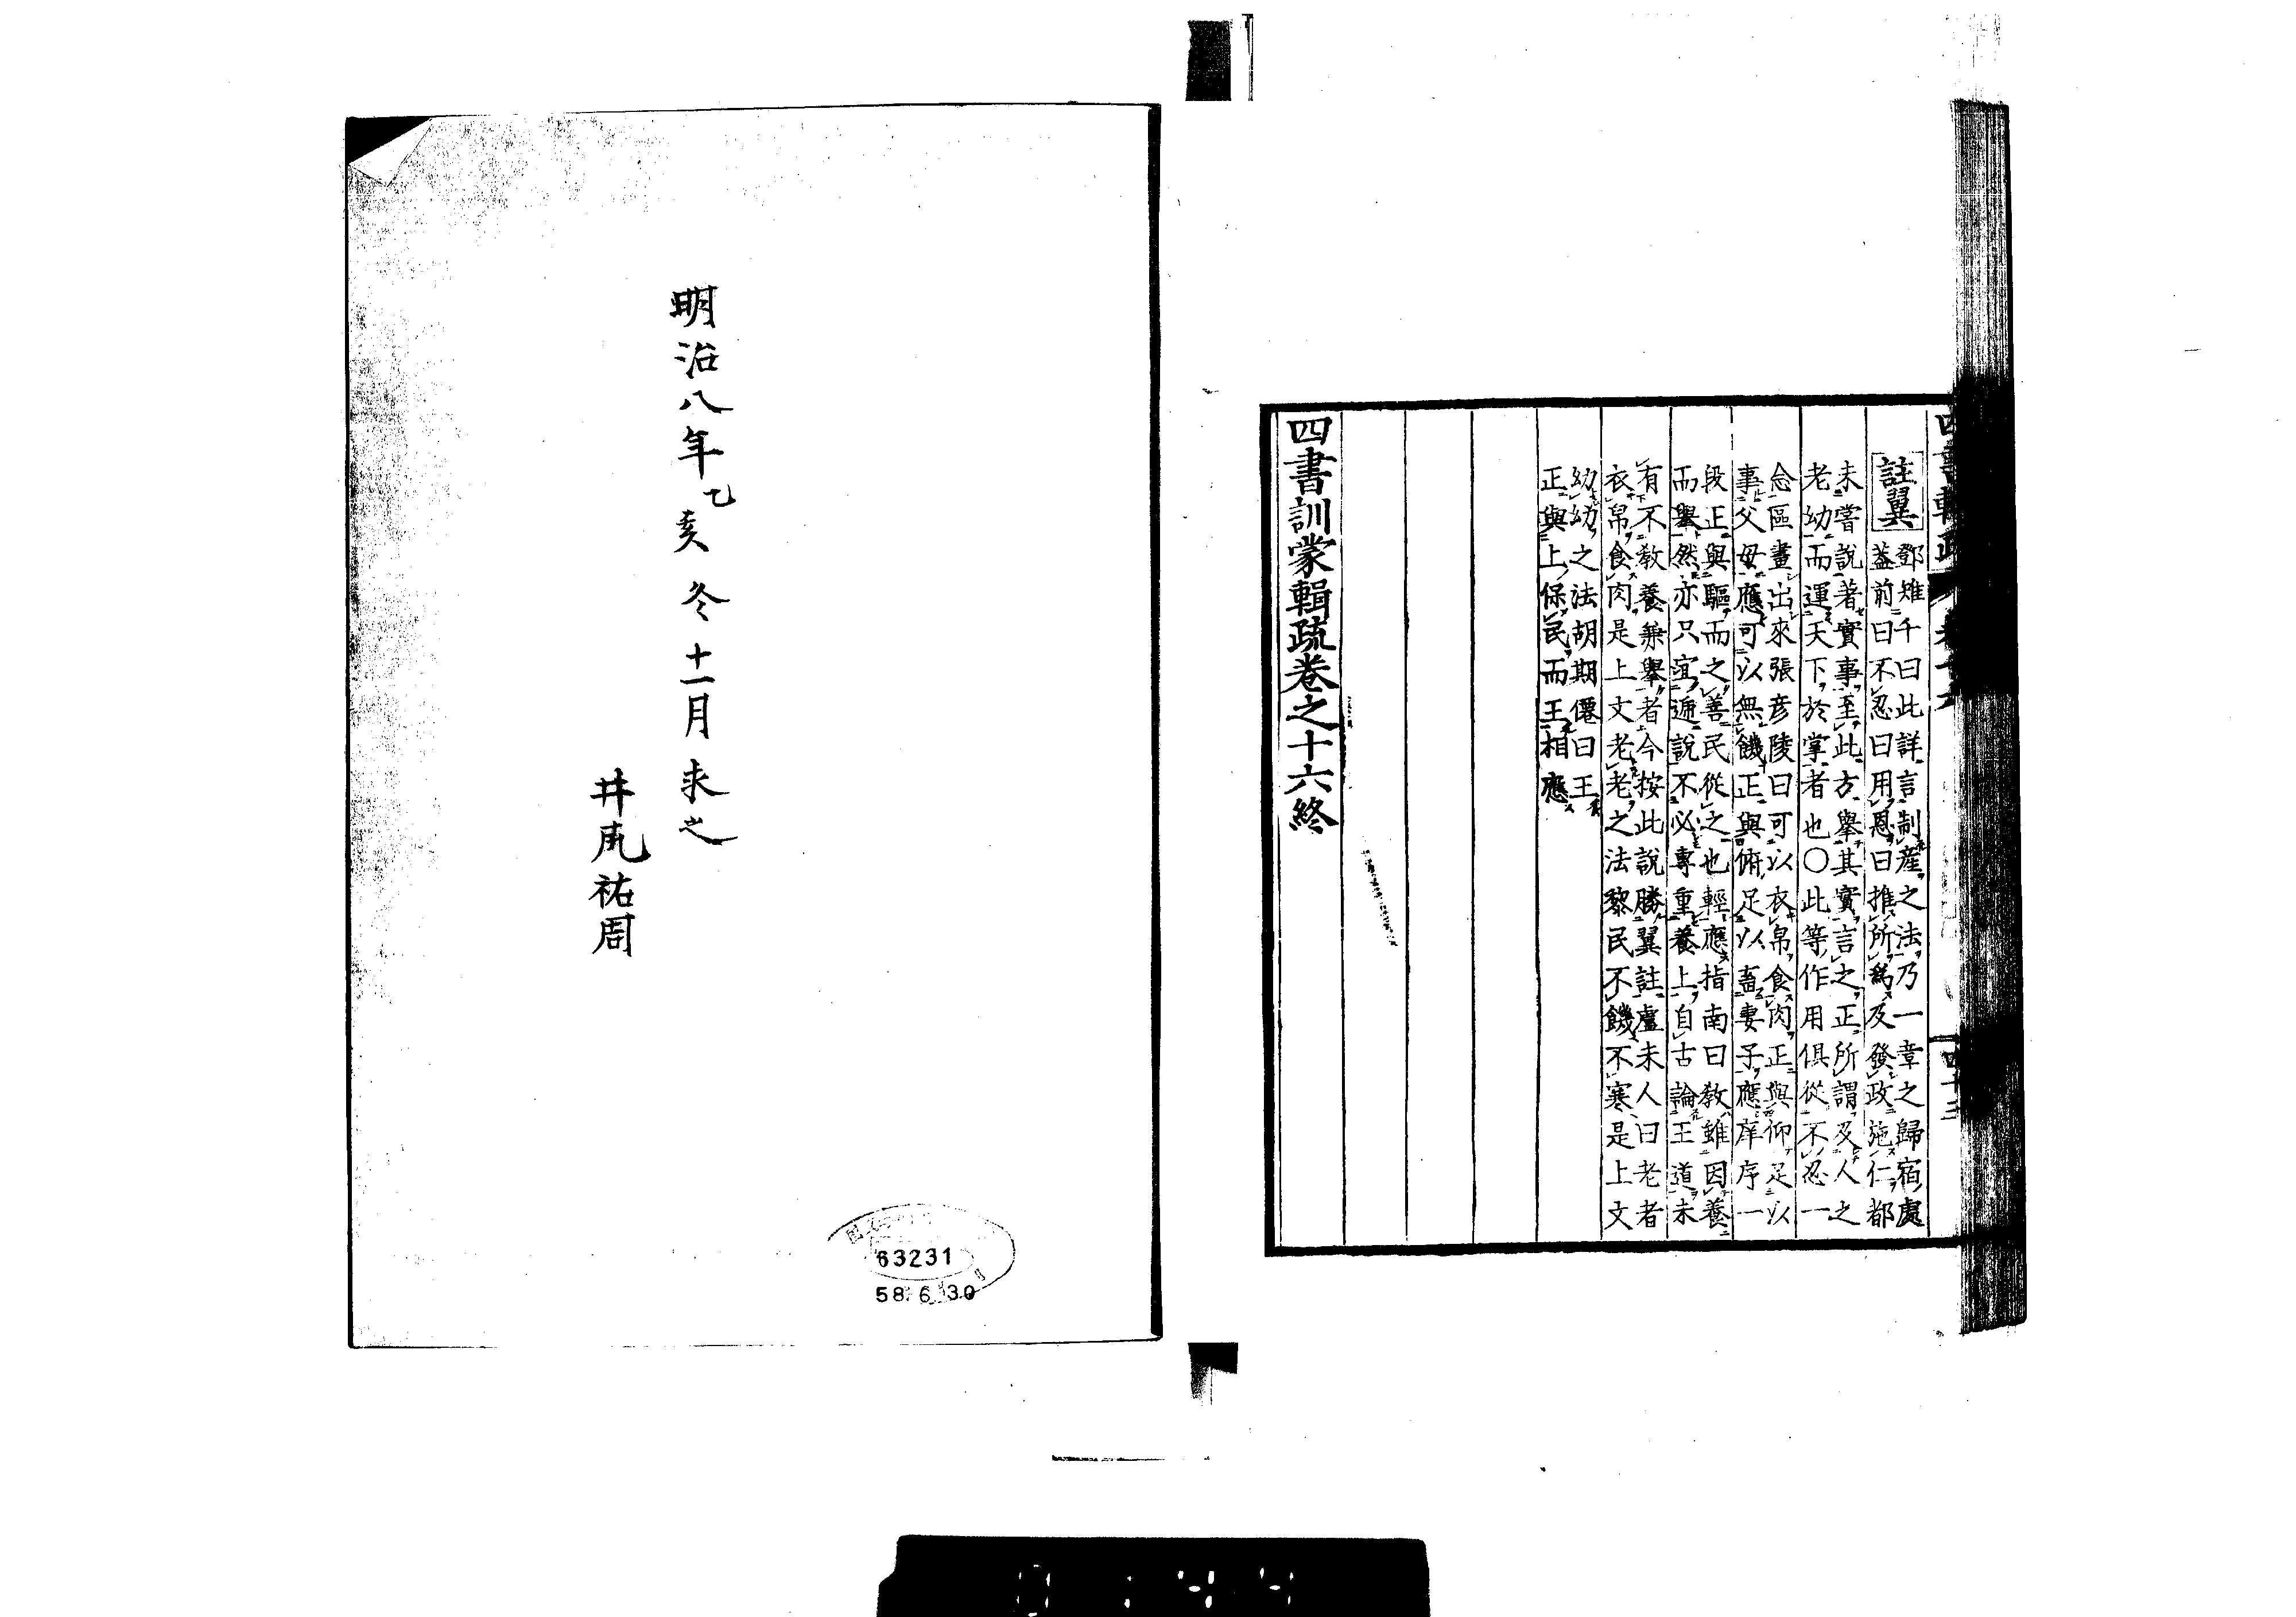 註翼
鄧雉千曰此詳言制産之法乃一章之歸宿處
蓋前曰不忍曰用恩曰推所爲及發政施仁都
未嘗說著實事至此方舉其實言之正所謂及人之
老幼而運天下於掌者也〇此等作用俱從不忍一
念區畫出來張彦陵曰可以衣帛食肉正與仰足以
事父母應可以無饑正與俯足以畜妻子應庠序一
段正與驅而之善民從之也輕應指南曰教雖因養
而舉然亦只宜逓說不必專重養上自古論王道未
有不教養兼舉者今按此說勝翼註盧未人曰老者
衣帛食肉是上文老老之法黎民不饑不寒是上文
幼幼之法胡期僊曰王
正與上保民而王相應
四書訓蒙輯疏卷之十六終
明治八年乙亥冬十一月求之
井凥祐周
63231
58 6 30
0144